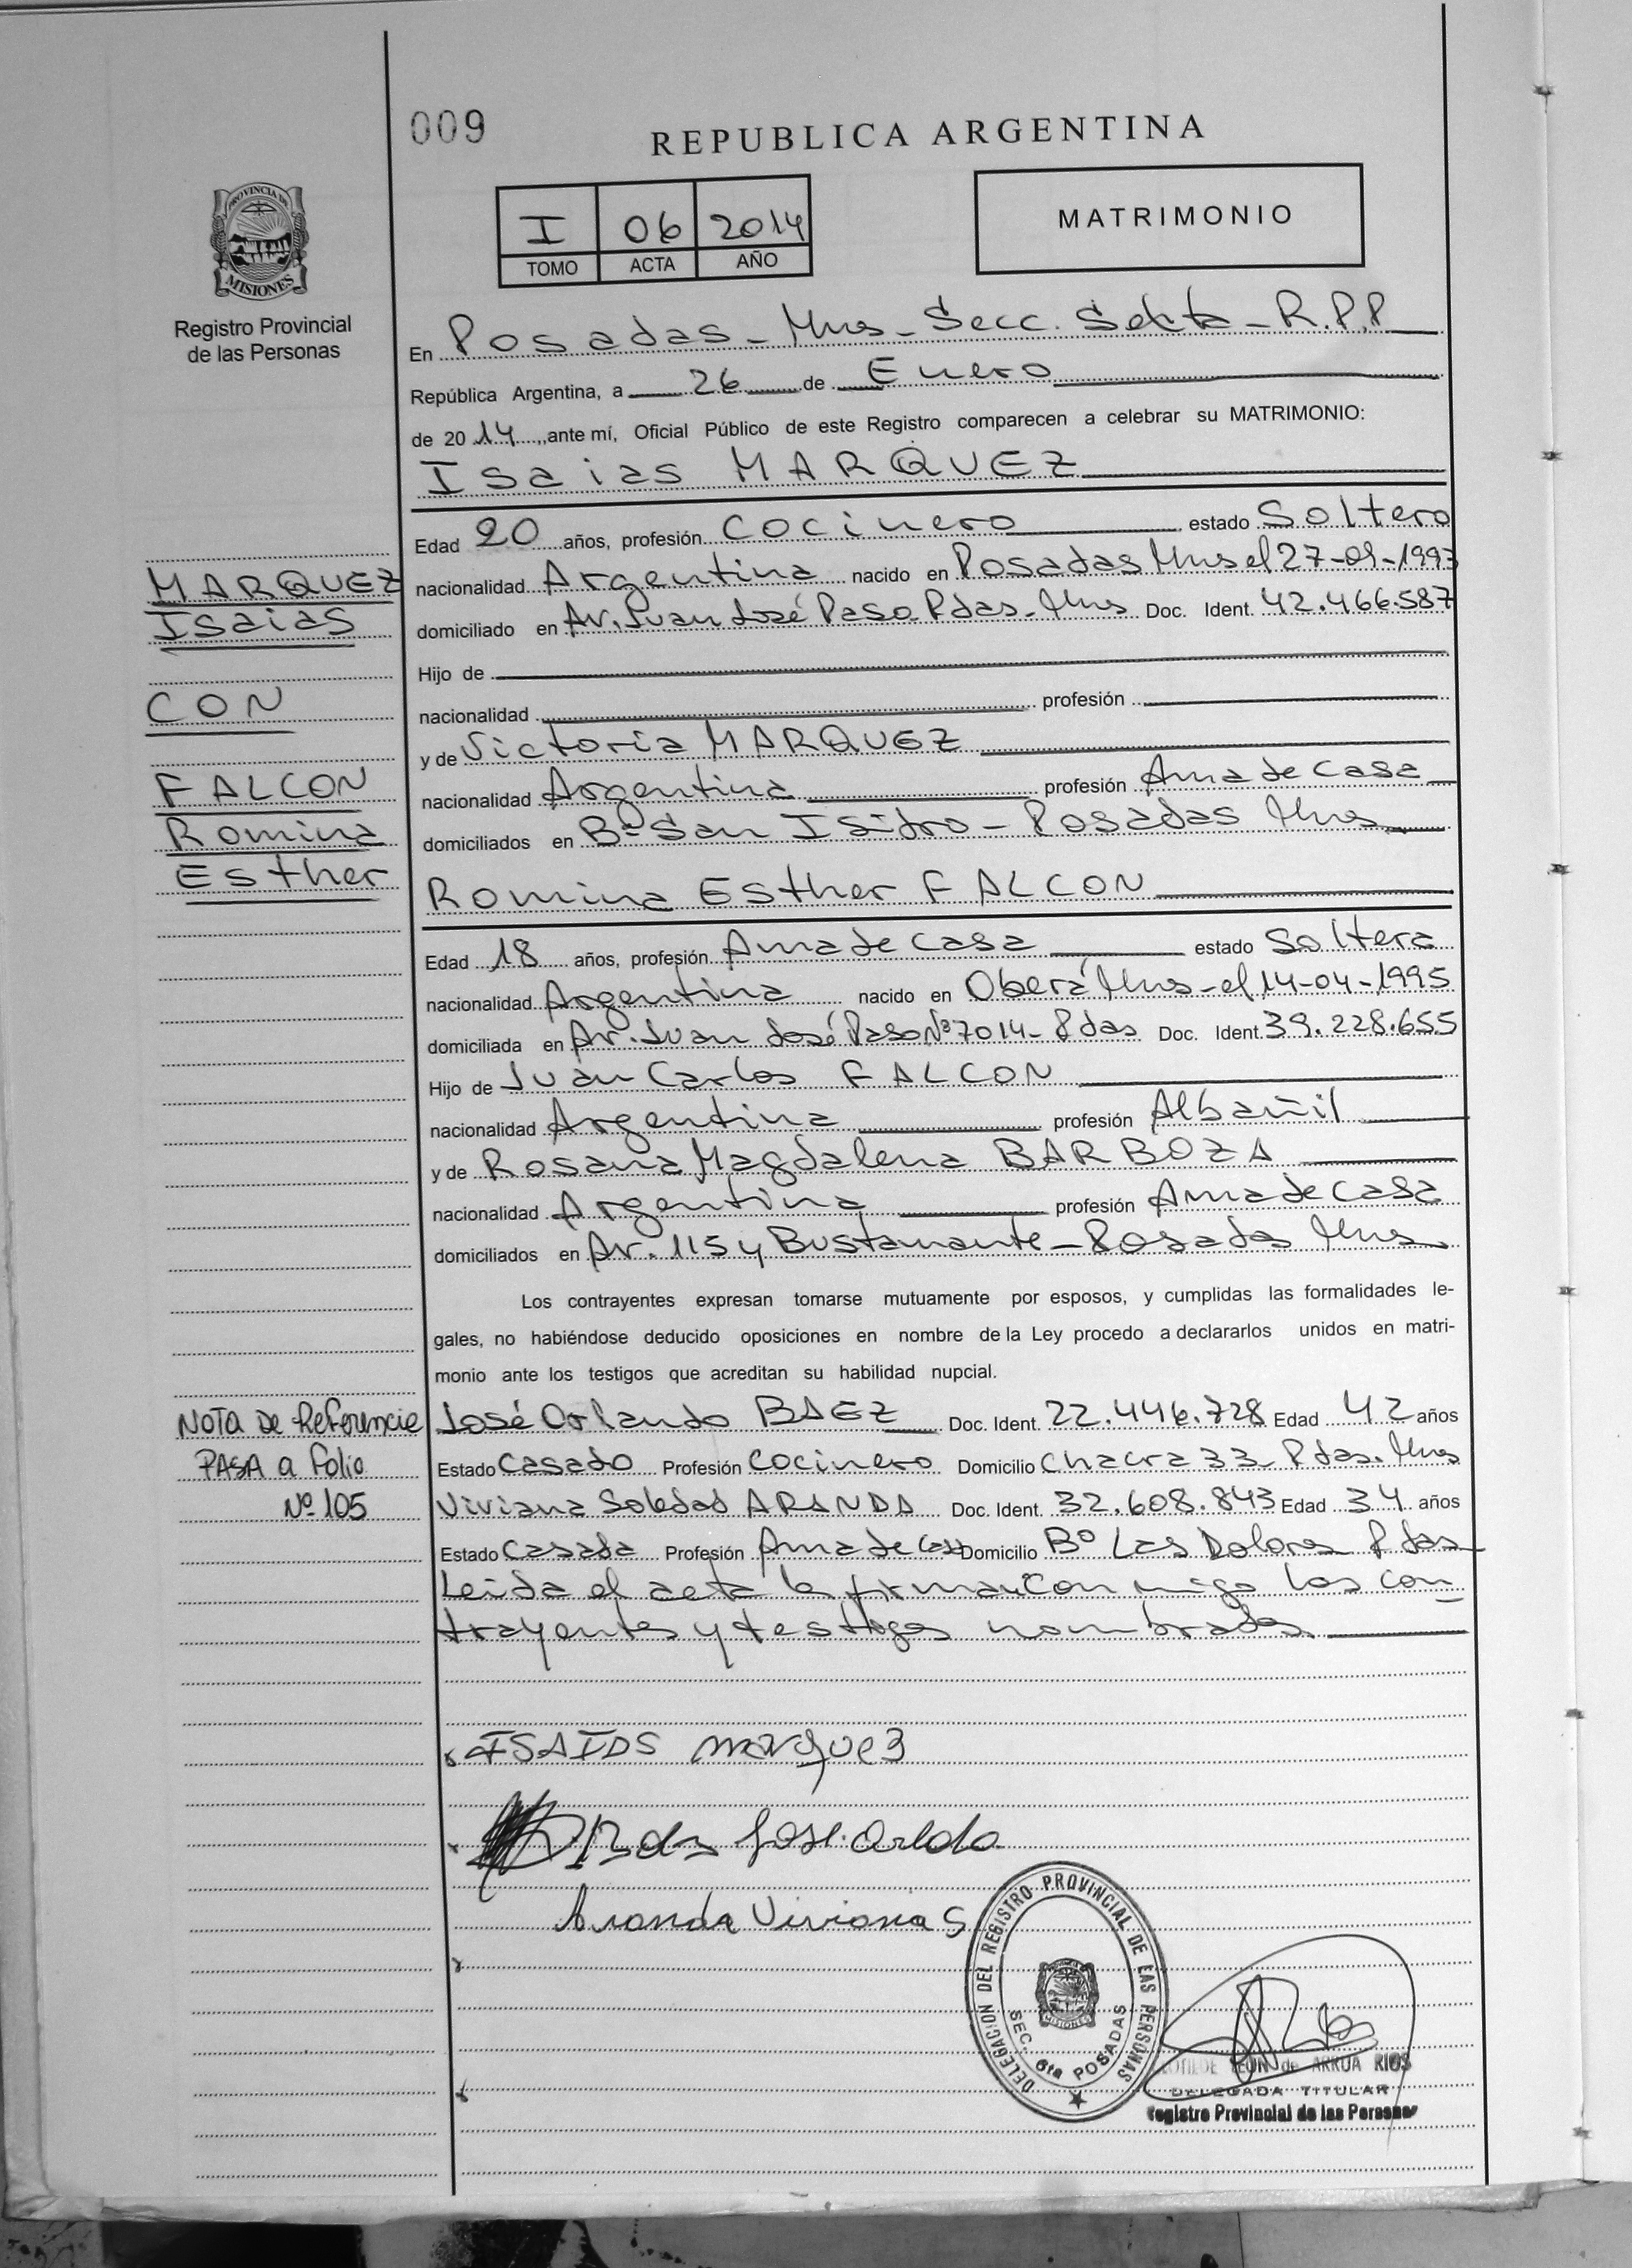 009
REPUBLICA ARGENTINA
PROVINCIA DE
MISIONES
Registro Provincial
de las Personas
I 06 2014
TOMO ACTA AÑO
MATRIMONIO
En Posadas - Mnes - Secc. Sexta - R.P.P
República Argentina, a 26 de Enero
de 2014, ante mí, Oficial Público de este Registro comparecen a celebrar su MATRIMONIO:
Isaias MARQUEZ
Edad 20 años, profesión Cocinero estado Soltero
nacionalidad Argentina nacido en Posadas Mnes el 27-09-1993
domiciliado en Av. Juan José Paso Pdas. Mns Doc. Ident. 42.466.587
Hijo de
nacionalidad profesión
y de Victoria MARQUEZ
nacionalidad Argentina profesión Ama de casa
domiciliados en Bº San Isidro - Posadas Mns
Romina Esther FALCON
Edad 18 años, profesión Ama de casa estado Soltera
nacionalidad Argentina nacido en Oberá Mns - el 14-04-1995
domiciliada en Av. Juan José Paso Nº 7014 - Pdas Doc. Ident. 39.228.655
Hijo de Juan Carlos FALCON
nacionalidad Argentina profesión Albañil
y de Rosana Magdalena BARBOZA
nacionalidad Argentina profesión Ama de casa
domiciliados en Av. 115 y Bustamante - Posadas Mns
Los contrayentes expresan tomarse mutuamente por esposos, y cumplidas las formalidades le-
gales, no habiéndose deducido oposiciones en nombre de la Ley procedo a declararlos unidos en matri-
monio ante los testigos que acreditan su habilidad nupcial.
José Orlando BAEZ Doc. Ident. 22.446.728 Edad 42 años
Estado Casado Profesión Cocinero Domicilio Chacra 33 Pdas. Mns
Viviana Soledad ARANDA Doc. Ident. 32.608.843 Edad 34 años
Estado Casada Profesión Ama de Casa Domicilio Bº Las Dolores Pdas
Leida el acta la firman con migo los con
trayentes y testigos nombrados
MARQUEZ
Isaias
CON
FALCON
Romina
Esther
NOTA DE Referencie
PASA a Folio
Nº 105
ISAIAS marquez
Aranda Viviana S
DELEGACION DEL REGISTRO PROVINCIAL DE LAS PERSONAS
SEC. 6ta POSADAS
MISIONES
LEON de ARRUA RIOS
DELEGADA TITULAR
Registro Provincial de las Personas